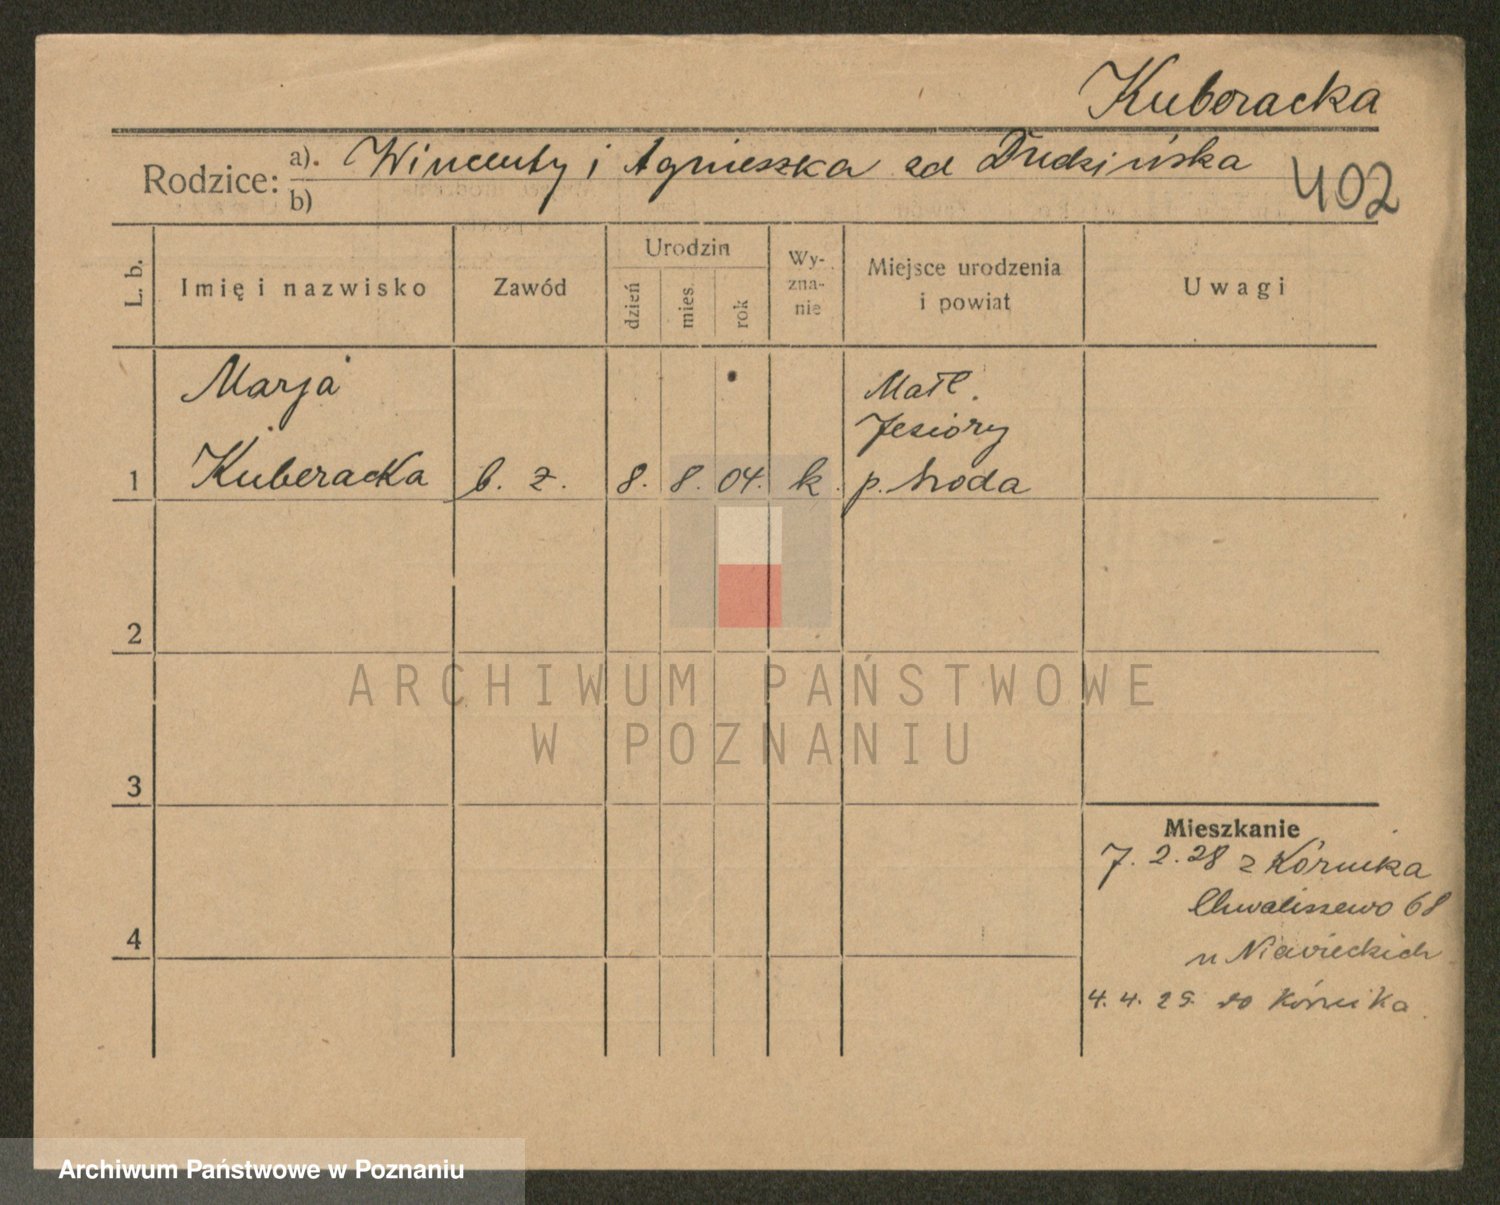 Kuberacka
Rodzice: a). Wincenty i Agnieszka zd Dudzińska
b)
402
L. b.
Imię i nazwisko
Zawód
Urodzin
dzień
mies.
rok
Wy-
zna-
nie
Miejsce urodzenia
i powiat
Uwagi
Marja
Kuberacka
1
b. z.
8. 8. 04.
k.
Jeziory
p. Środa
2
3
4
Mieszkanie
7. 2. 28 z Kórnika
Chwaliszewo 68
u
4. 4. 29. do Kórnika.
ARCHIWUM PAŃSTWOWE
W POZNANIU
Archiwum Państwowe w Poznaniu